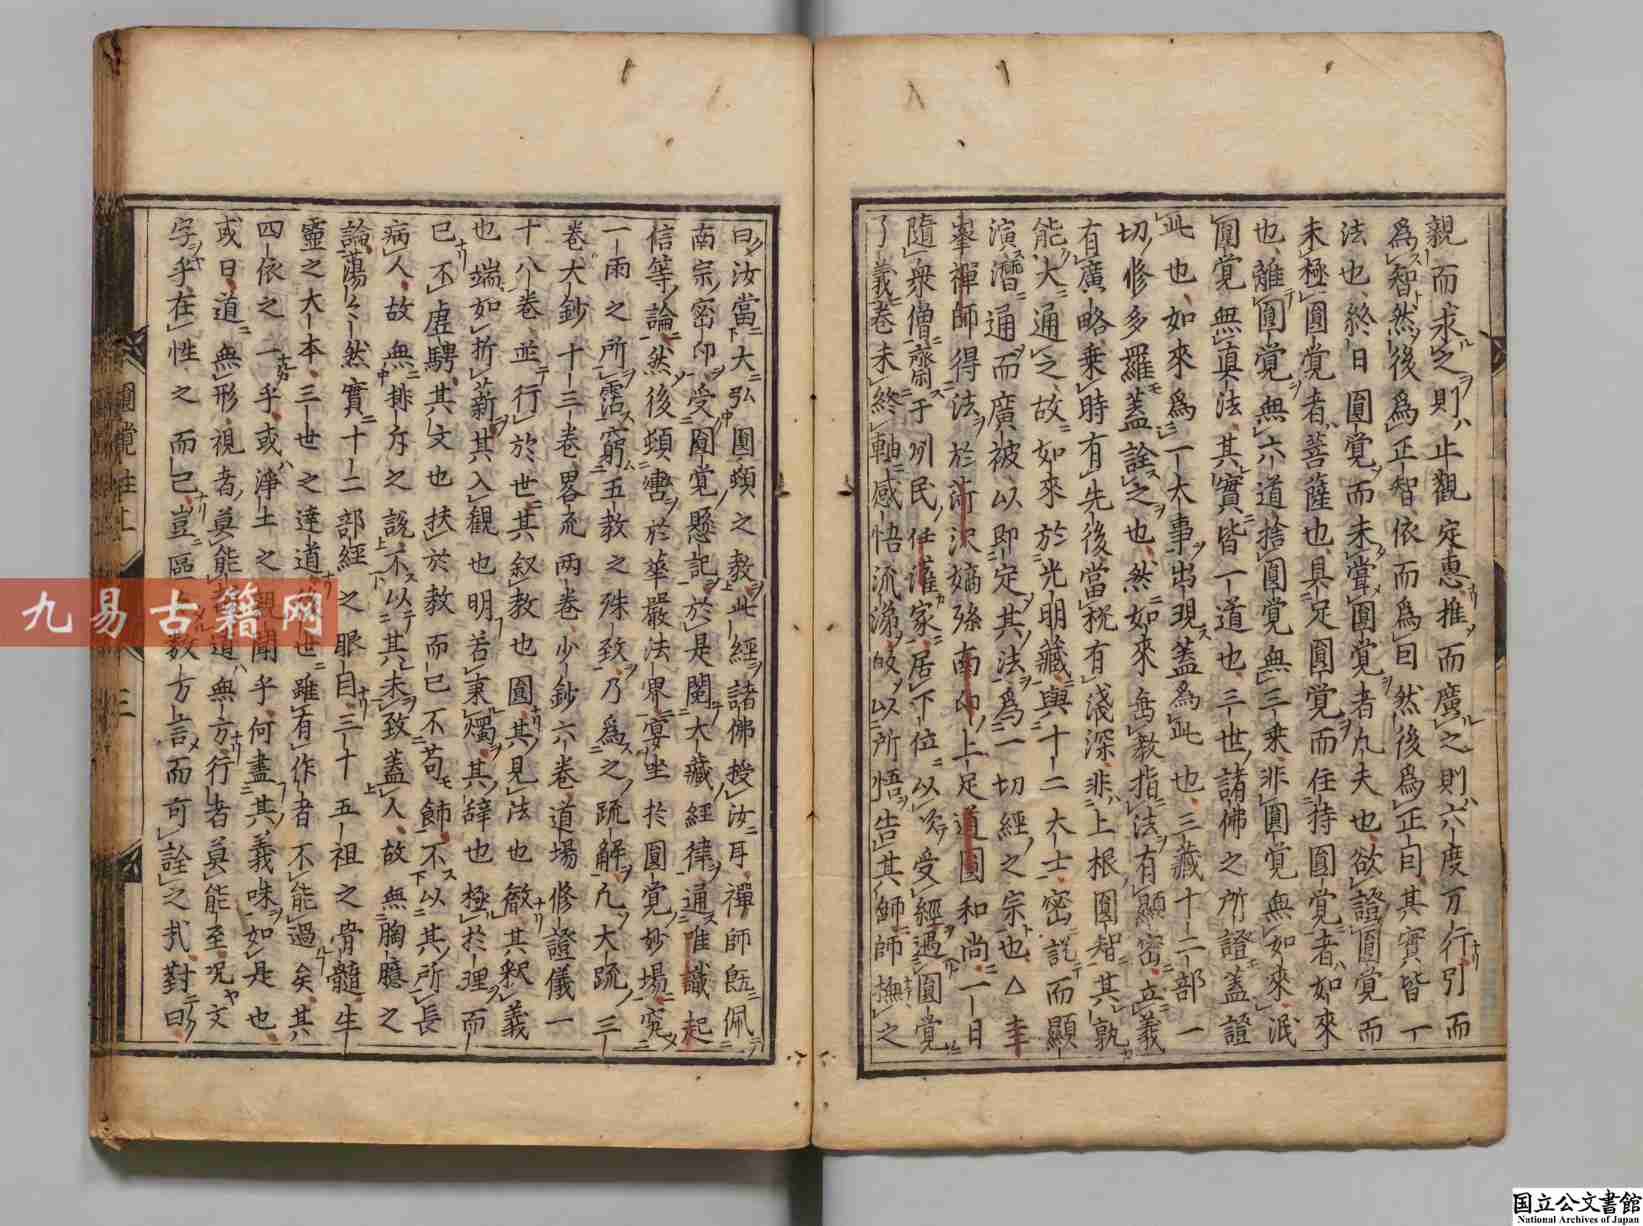 親而求之則止觀定惠推而廣之則六度万行引而
為智然後為正智依而為因然後為正因其實皆一
法也終日圓覺而未甞圓覺者凡夫也欲證圓覺而
未極圓覺者菩薩也具足圓覺而住持圓覺者如來
也離圓覺無六道捨圓覺無三乘非圓覺無如來泯
圓覺無真法其實皆一道也三世諸佛之所證蓋證
此也如來為一大事出現蓋為此也三藏十二部一
切修多羅蓋詮之也然如來垂教指法有顯密立義
有廣略乘時有先後當機有淺深非上根圓智其孰
能大通之故如來於光明藏與十二大士密說而顯
演潛通而廣被以即定其法為一切經之宗也△圭
峯禪師得法於荷沢嫡孫南印上足道圓和尚一日
隨衆僧齋于州民任灌家居下位以次受經遇圓覺
了義卷未終軸感悟流涕皈以所悟告其師師撫之
曰汝當大弘圓頓之教此經諸佛授汝耳禪師既佩
南宗密印受圓覺懸記於是閱大藏經律通唯識起
信等論然後頓轡於華嚴法界宴坐於圓覺妙場究
一雨之所霑窮五教之殊致乃為之疏解凡大疏三
卷大鈔十三卷畧疏兩卷少鈔六卷道場修證儀一
十八卷並行於世其叙教也圓其見法也徹其釈義
也端如折薪其入觀也明若秉燭其辞也極於理而
已不虛騁其文也扶於教而已不苟飾不以其所長
病人故無排斥之說不以其未致蓋人故無胸臆之
論蕩々然實十二部經之眼目三十五祖之骨髓生
靈之大本三世之達道後世雖有作者不能過矣其
四依之一乎或淨土之親聞乎何盡其義味如是也
或曰道無形視者莫能覩道無方行者莫能至况文
字乎在性之而已豈區々數万言而可詮之哉對曰
圓覺經上
三
九易古籍网
国立公文書館
National Archives of Japan